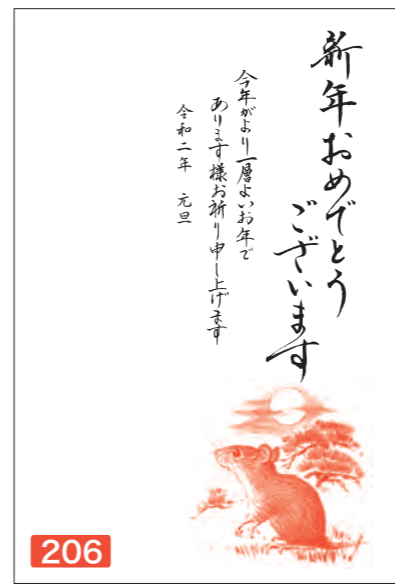 新年おめでとう
ございます
今年がより一層よいお年で
あります様お祈り申し上げます
令和二年 元旦
206